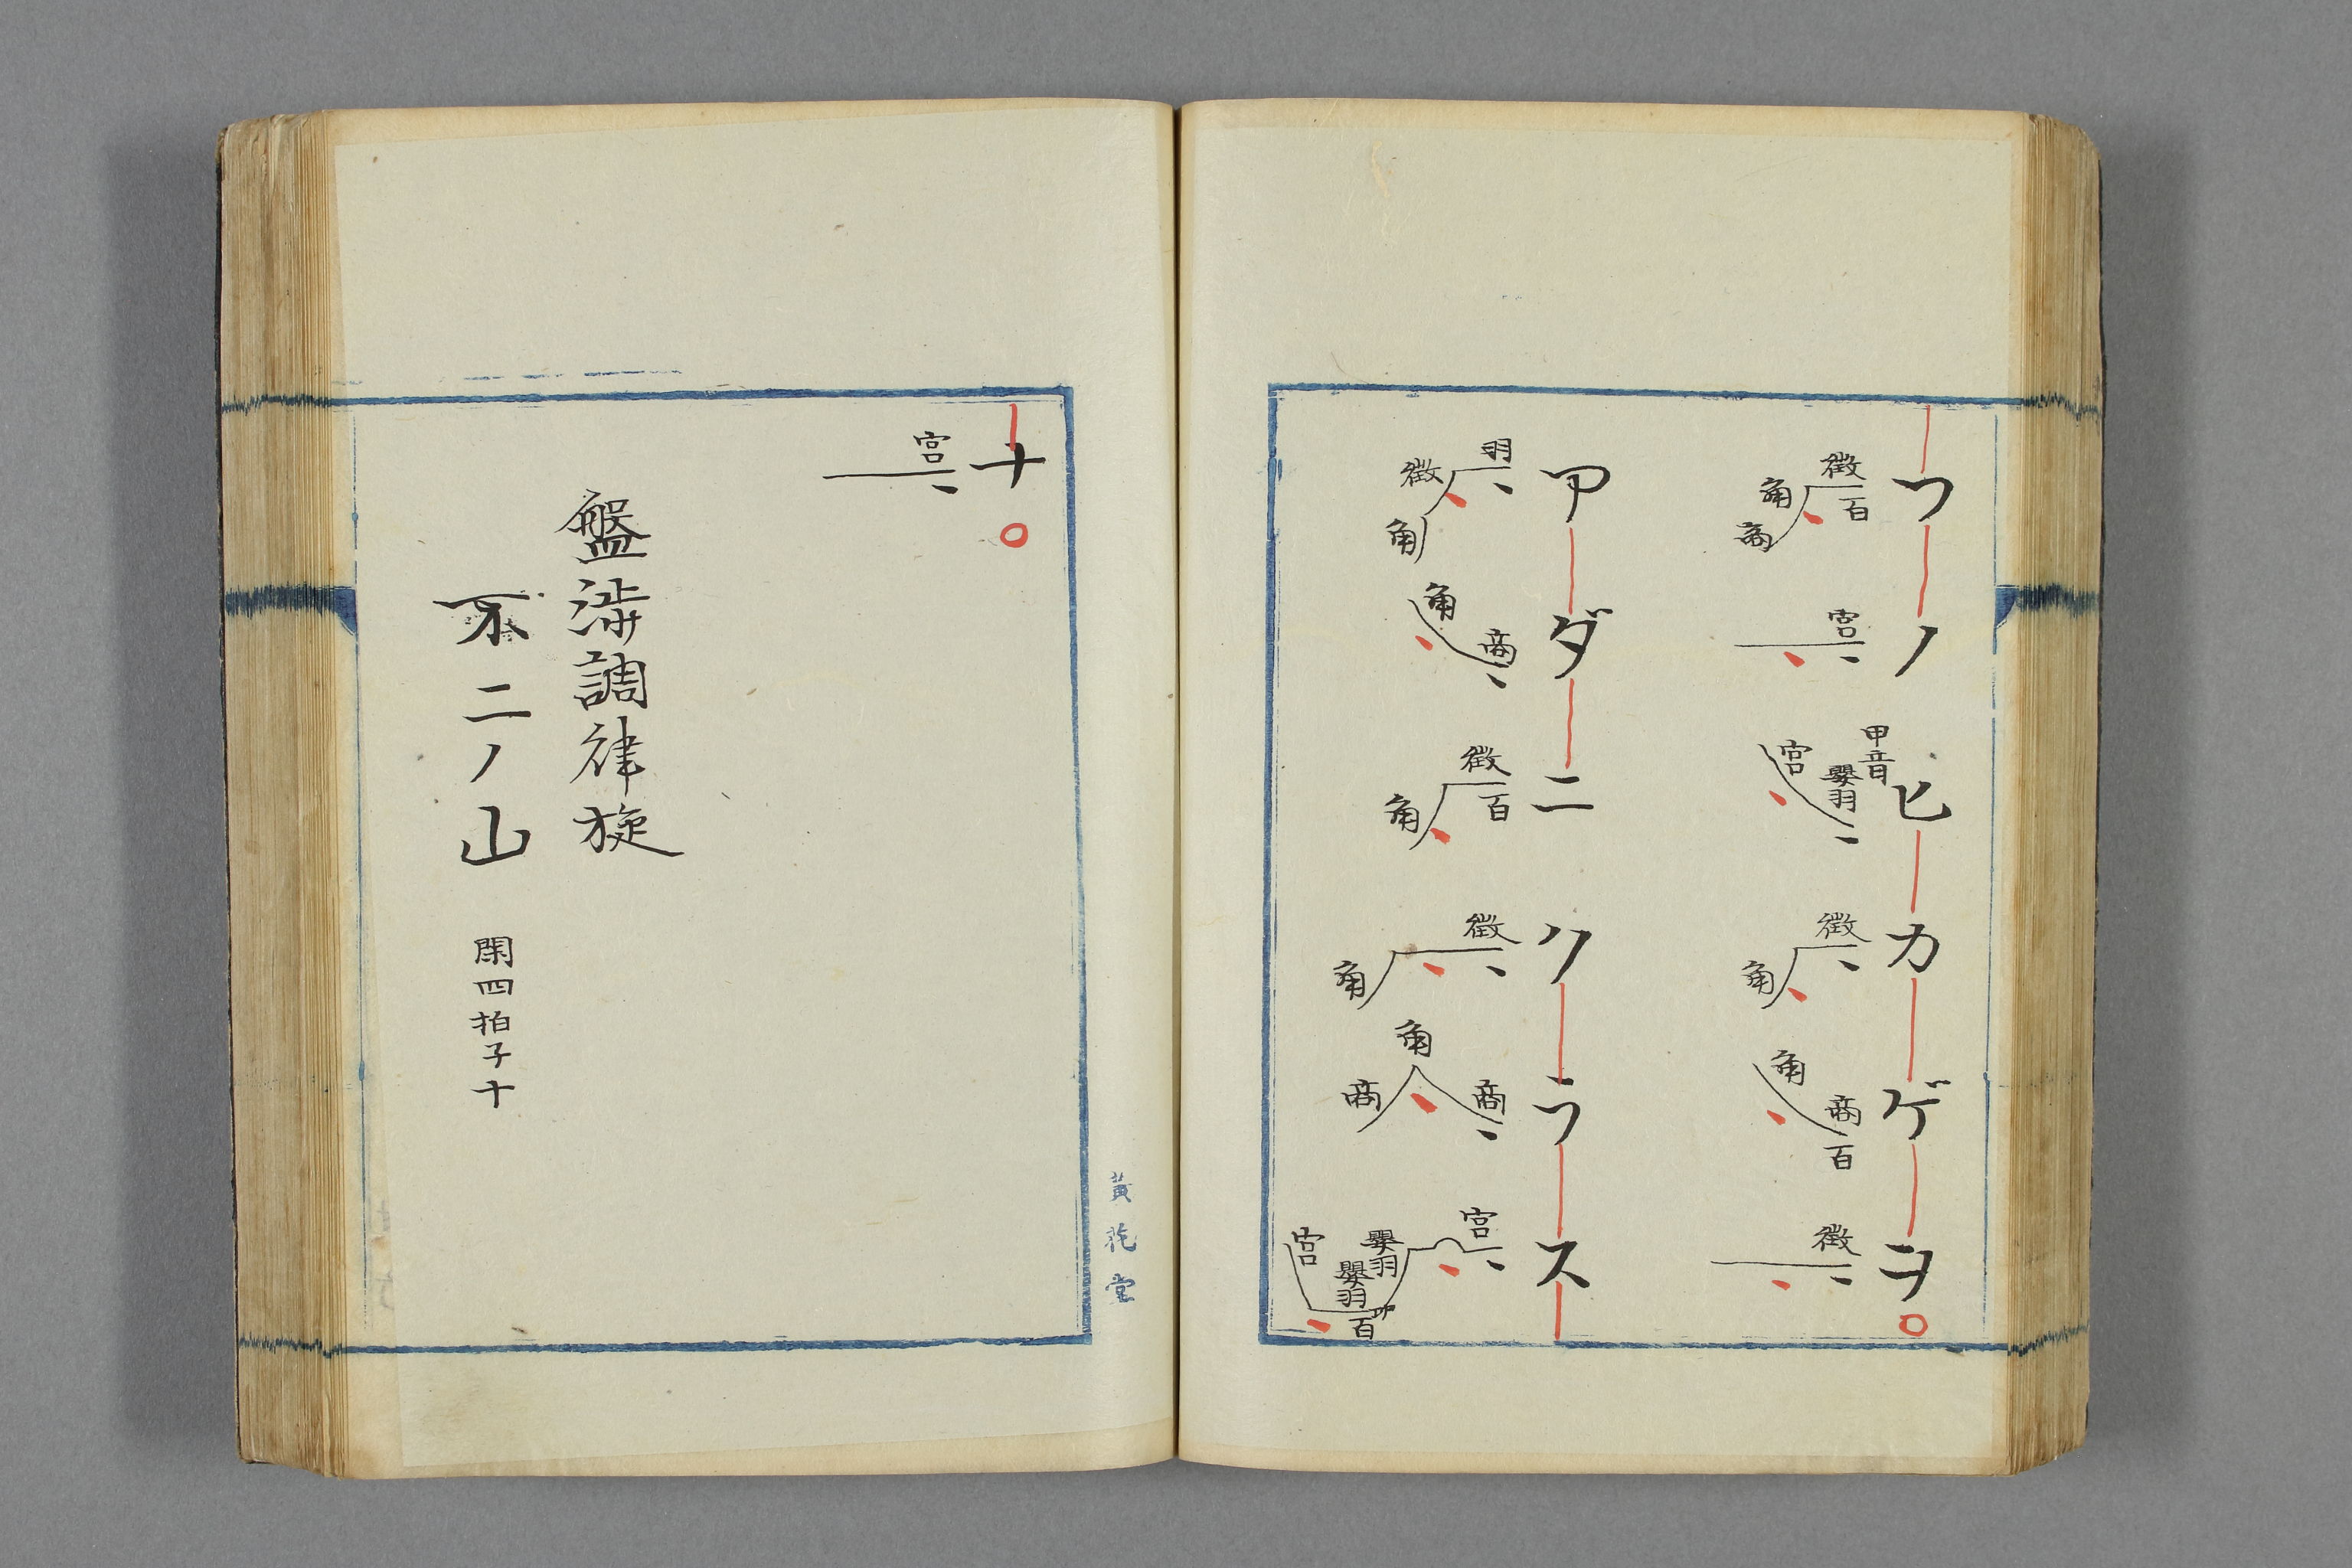 フノヒカゲヲ
徴 百 角 商 宮 甲音 嬰羽 宮 徴 角 商 角 百 徴
アダニクラス
羽 徴 角 商 角 徴 百 角 徴 角 商 角 商 宮 嬰羽 嬰羽 百 宮
ナ
宮
盤渉調律旋
不二ノ山 閑四拍子十
黄花堂